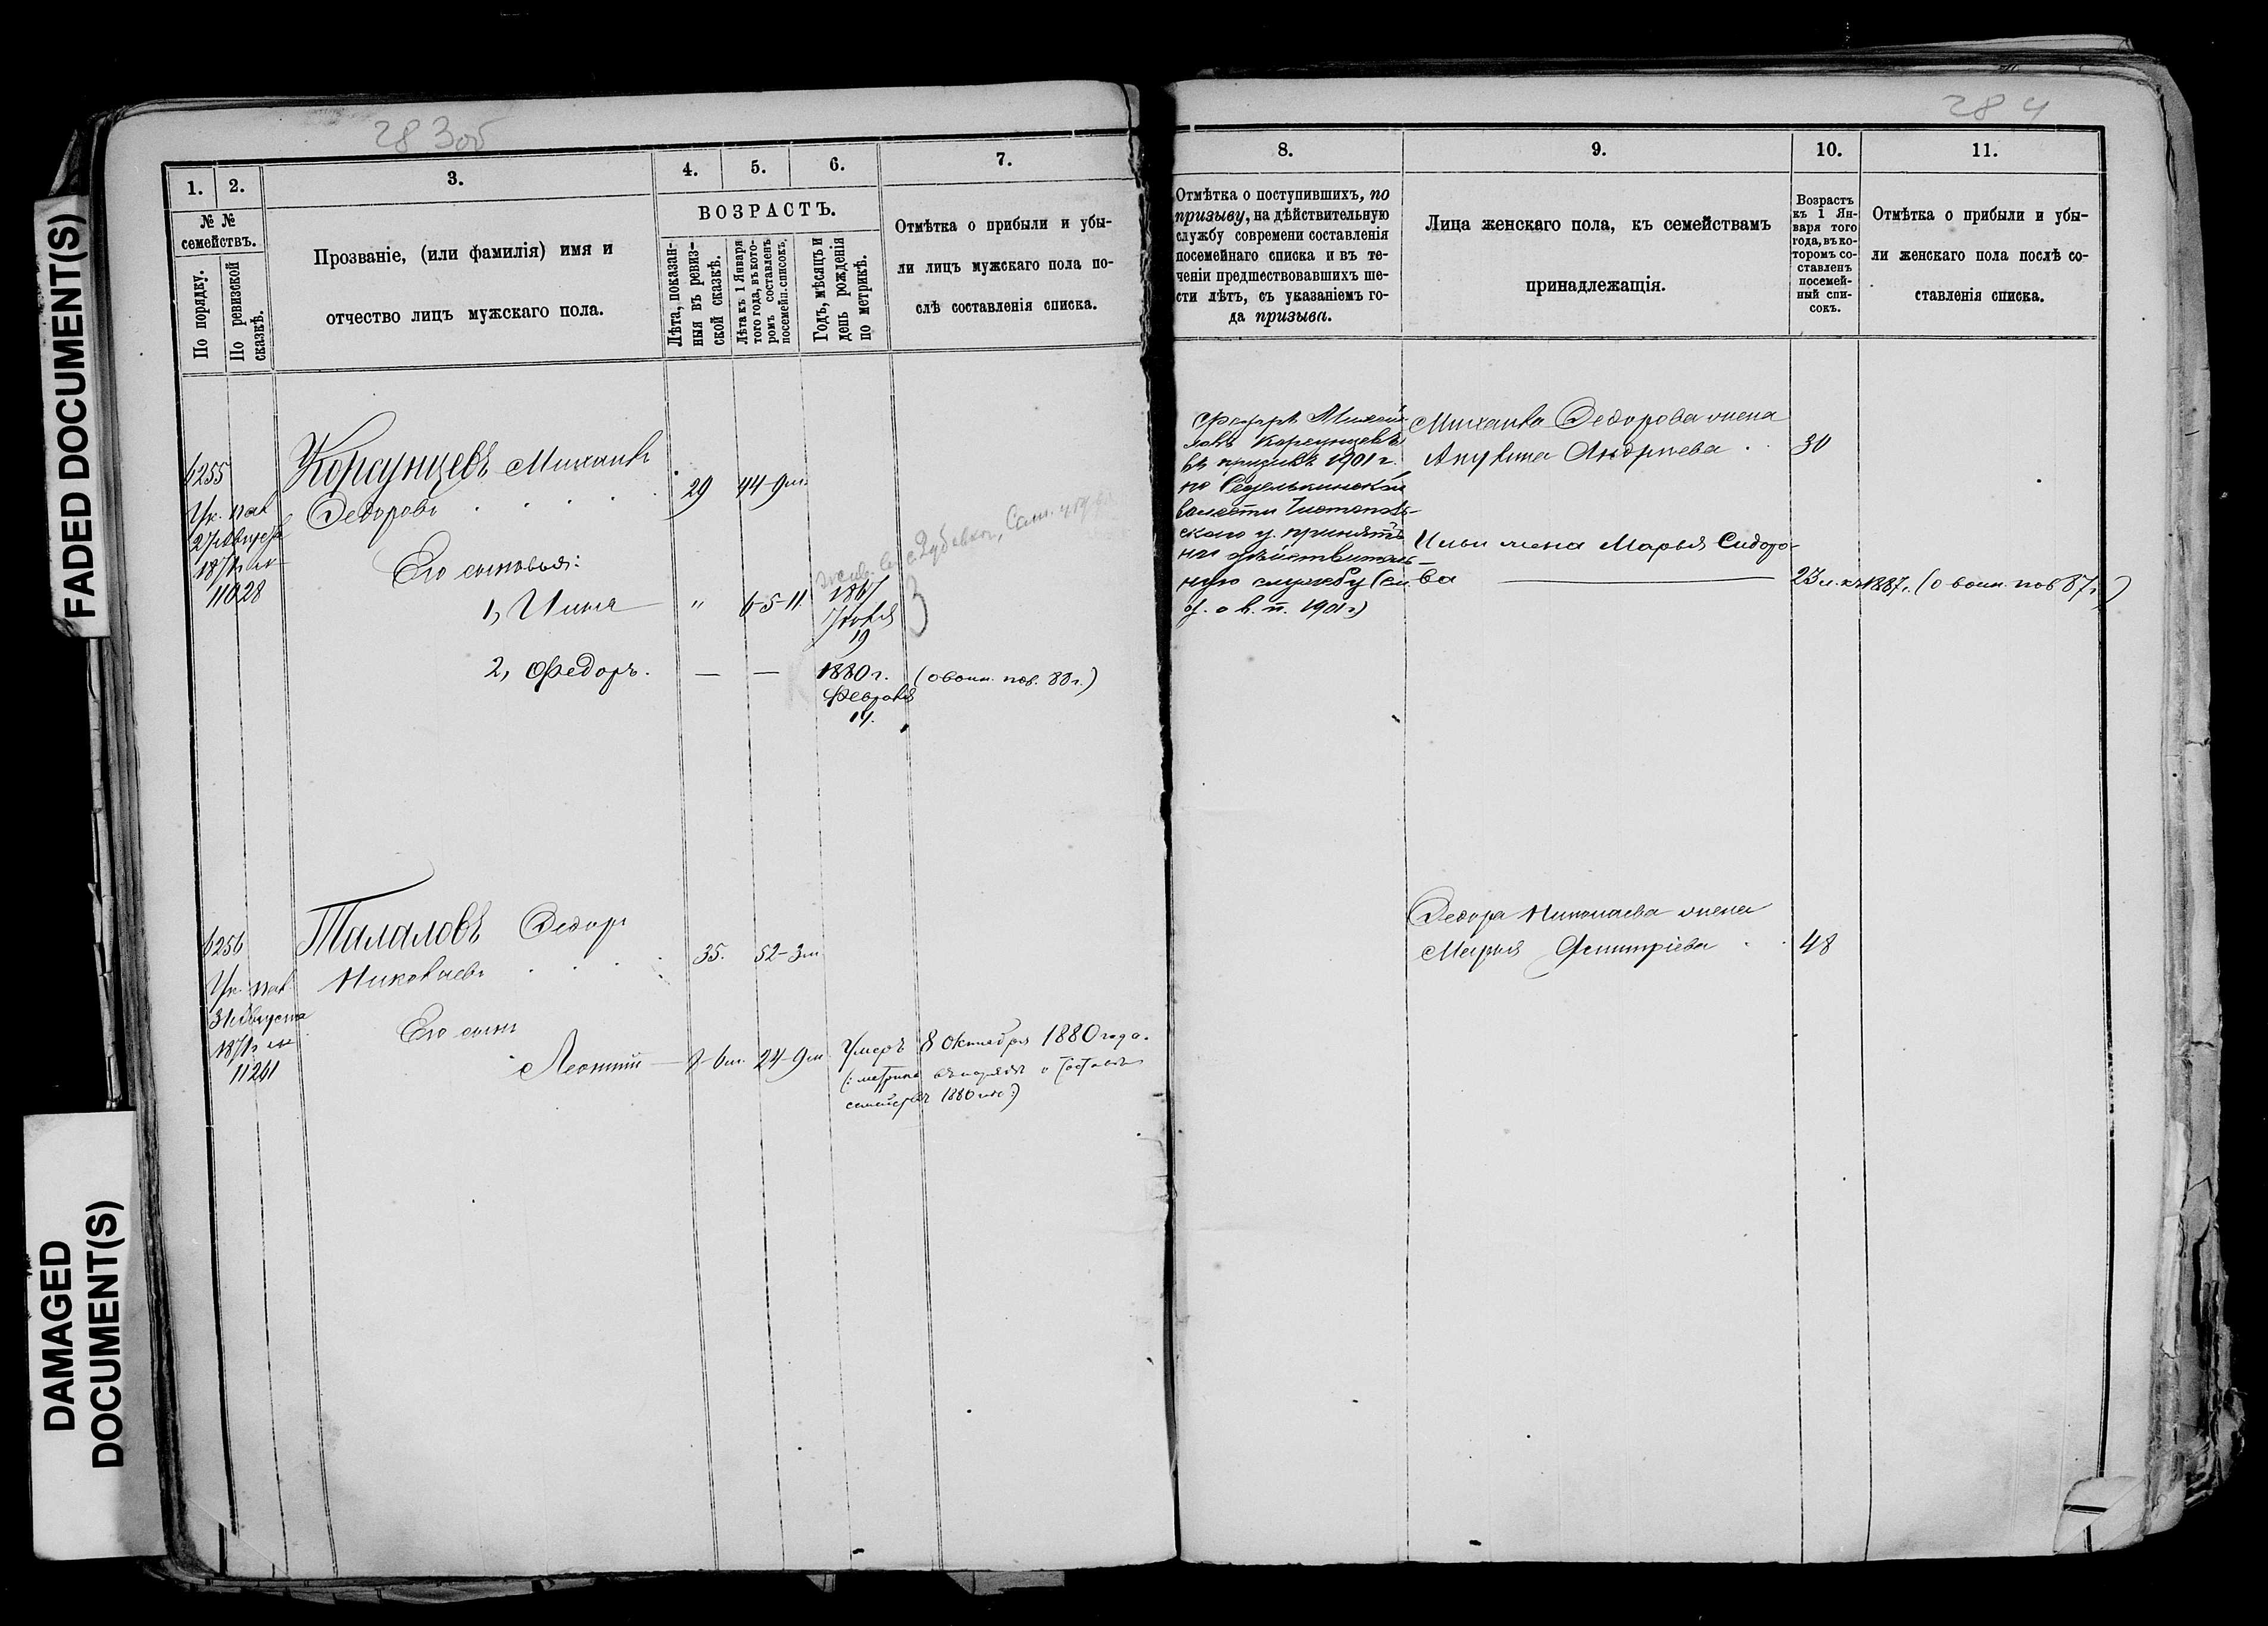 FADED DOCUMENT(S)
DAMAGED
DOCUMENT(S)
283об
1.
2.
3.
4.
5.
6.
7.
№ №
семействъ.
По порядку.
По ревизской
сказкѣ.
Прозваніе, (или фамилія) имя и
отчество лицъ мужскаго пола.
ВОЗРАСТЪ.
Лѣта, показан-
ныя въ ревиз-
ской сказкѣ.
Лѣта къ 1 Января
того года, въ кото-
ромъ составленъ
посемейн. списокъ.
Годъ, мѣсяцъ и
день рожденія
по метрикѣ.
Отмѣтка о прибыли и убы-
ли лицъ мужскаго пола по-
слѣ составленія списка.
6255
Ук. пал.
27 Августа
1871 г. №
11028
Корсунцевъ Михаилъ
Федоровъ
29 44-9 м.
Его сыновья:
1, Илья " 6-5-11.
1867
Іюля
19
2, Федоръ. — — 1880 г. (о воин. пов. 88 г.)
Февраля
14.
6256
Ук. пал.
31 Августа
1871 г. №
11241
Талаловъ Федоръ
Николаевъ
35. 52-3 м
Его сынъ
Леонтій 7-6 м. 24-9 м Умеръ 8 Октября 1880 года.
(: метрика
1880 :)
284
8.
9.
10.
11.
Отмѣтка о поступившихъ, по
призыву, на дѣйствительную
службу современи составленія
посемейнаго списка и въ те-
ченіи предшествовавшихъ ше-
сти лѣтъ, съ указаніемъ го-
да призыва.
Лица женскаго пола, къ семействамъ
принадлежащія.
Возрастъ
къ 1 Ян-
варя того
года, въ ко-
торомъ со-
ставленъ
посемей-
ный спи-
сокъ.
Отмѣтка о прибыли и убы-
ли женскаго пола послѣ со-
ставленія списка.
Федоръ Михай-
ловъ Корсунцевъ
въ призывъ 1901 г.
по
волости
скаго у. принятъ
на дѣйствитель-
ную службу (см.
д. о в. п. 1901 г)
Михаила Федорова жена
Акулина Андреева 30
Ильи жена Марья Сидоро-
ва 23 л. къ 1887 г. (о воин. пов 87 г.)
Федора Николаева жена
Марья Дмитріева 48